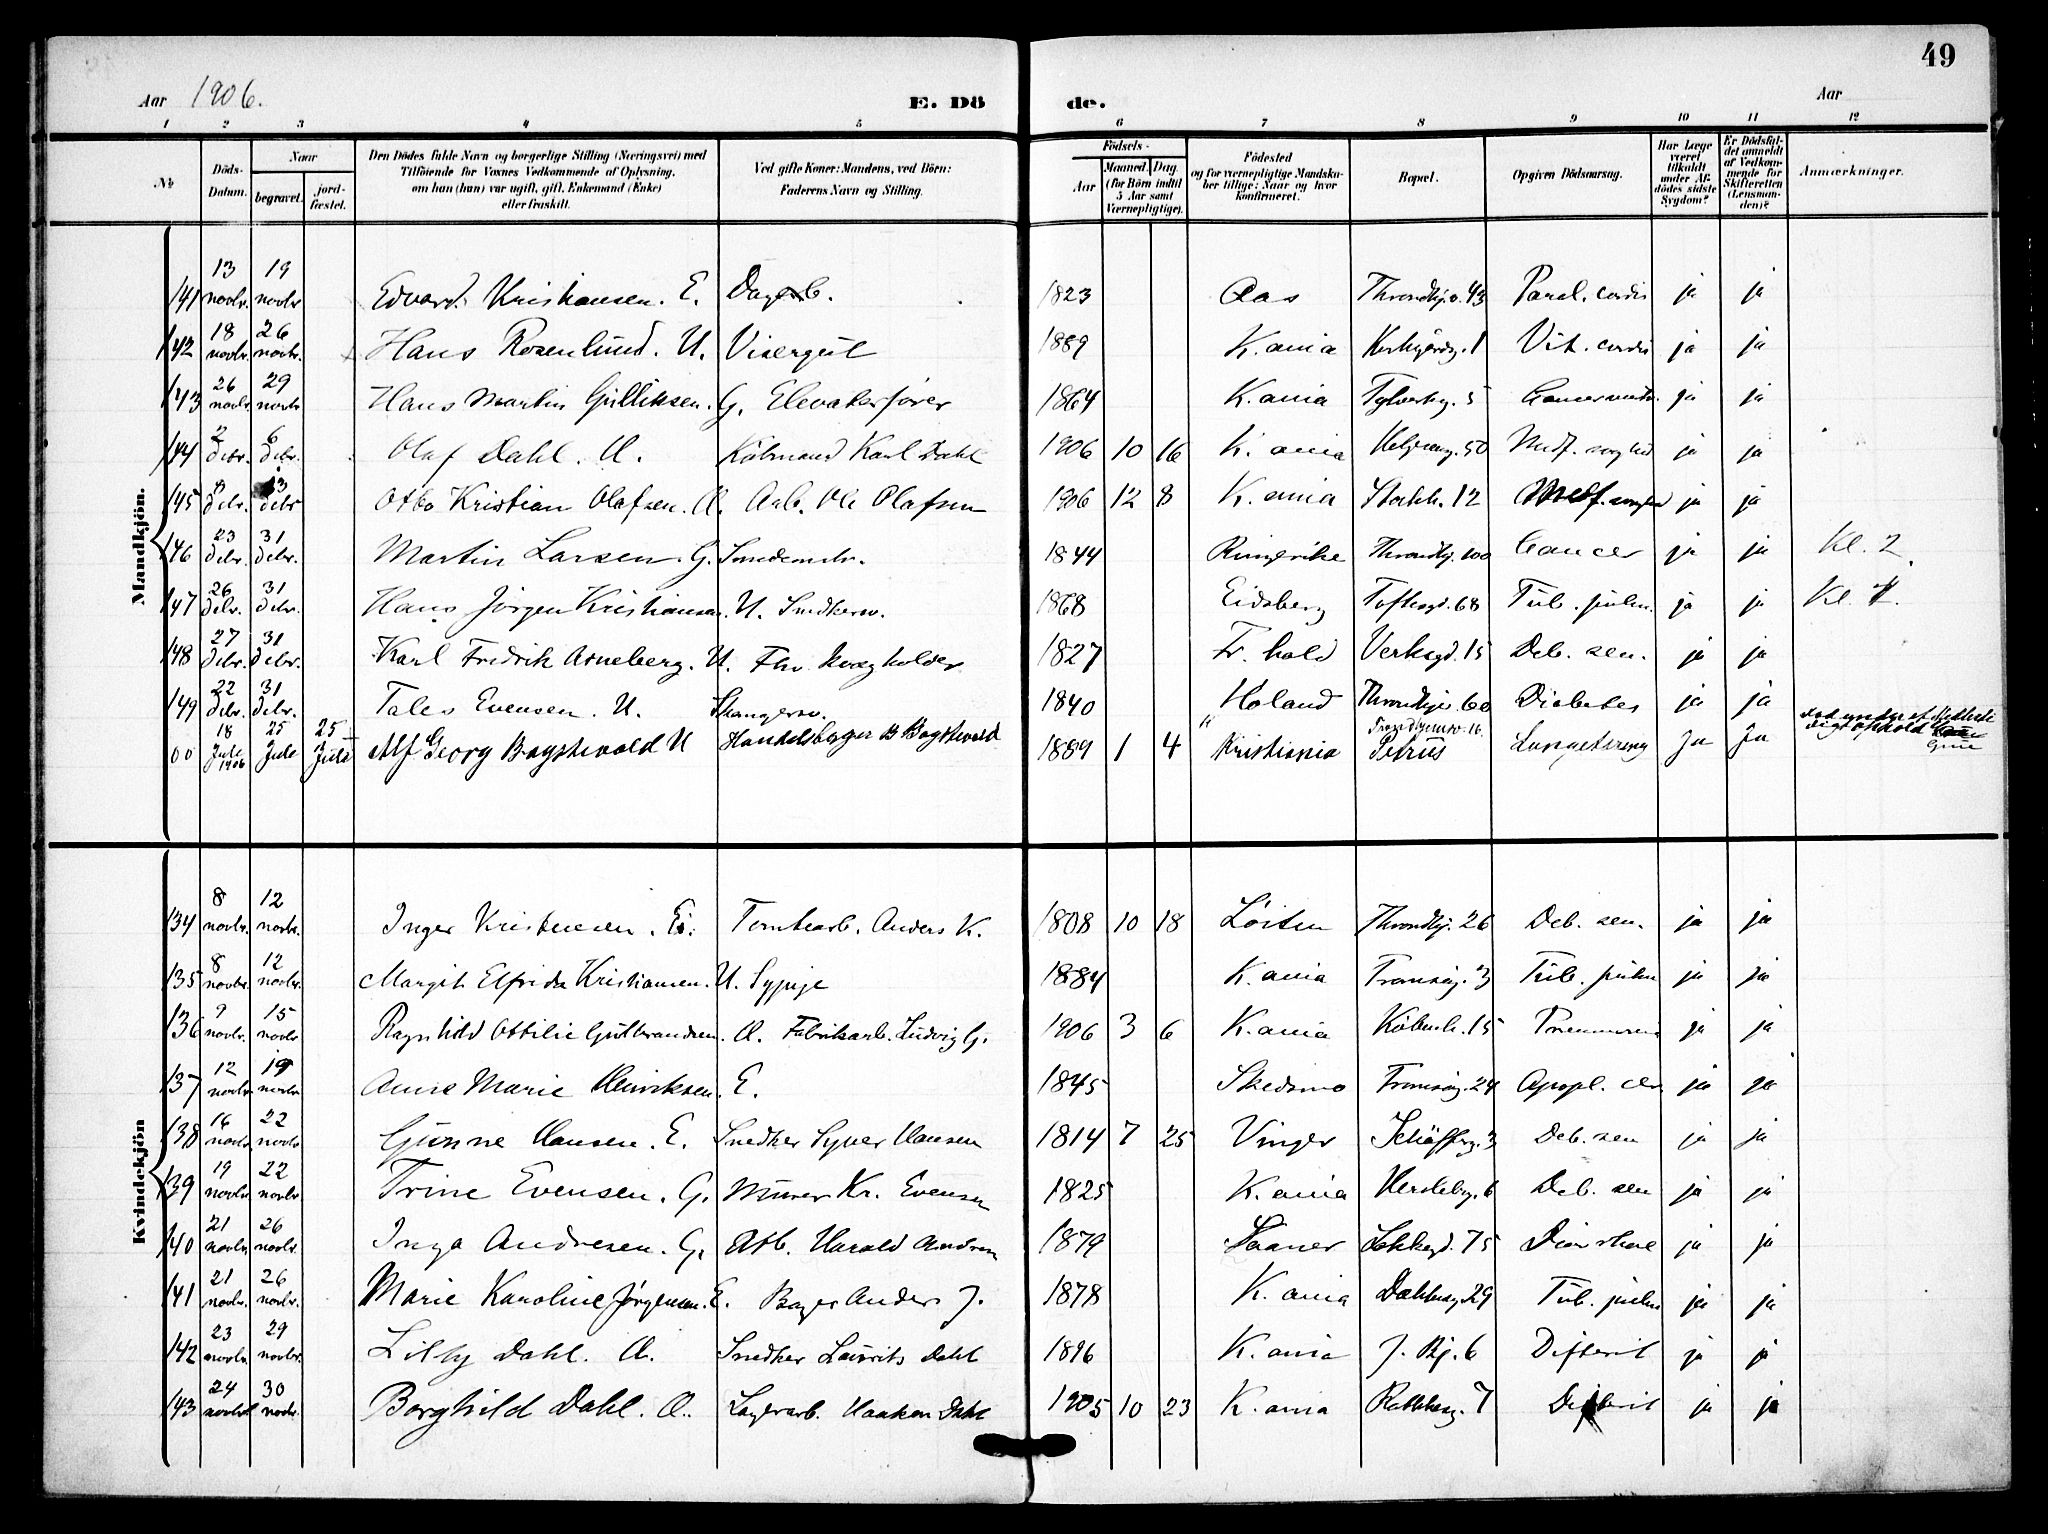 49
Aar 1906.
E. Dö de.
Aar
1 2 3 4 5 6 7 8 9 10 11 12
No
Döds-Datum.
Naar
begravet.
jord-fæstet.
Den Dödes fulde Navn og borgerlige Stilling (Næringsvei) med
Tilföiende for Voxnes Vedkommende af Oplysning,
om han (hun) var ugift, gift, Enkemand (Enke)
eller fraskilt.
Ved gifte Koner: Mandens, ved Börn:
Faderens Navn og Stilling.
Födsels-
Aar
Maaned. Dag.
(for Börn indtil
5 Aar samt
Værnepligtige).
Födested
og for værnepligtige Mandska-
ber tillige: Naar og hvor
Konfirmeret.
Bopæl.
Opgiven Dödsaarsag.
Har Læge
været
tilkaldt
under Af-
dödes sidste
Sygdom?
Er Dödsfal-
det anmeldt
af Vedkom-
mende for
Skifteretten
(Lensman-
den)?
Anmærkninger.
Mandkjön.
141 13 novbr. 19 novbr Edvard Kristiansen. E. Dagarb. 1823 Aas Throndhj.v. 43 Paral. cordis ja ja
142 18 novbr. 26 novbr. Hans Rosenlund. U. Visergut 1889 K.ania 1 Vit. cordis ja ja
143 26 novbr. 29 novbr Hans Martin Gulliksen. G. Elevatorförer 1864 K.ania 5 Cancer ja ja
144 2 debr. 6 debr. Olaf Dahl. U. Kölmand Karl Dahl 1906 10 16 K.ania Helgesensg. 50 Medf. svaghed ja ja
145 debr. 13 debr Otto Kristian Olafsen. U. Arb. Ole Olafsen 1906 12 8 K.ania Stockh. 12 Medf. svaghed ja ja
146 23 debr. 31 debr. Martin Larsen. G. Smedemstr. 1844 Ringerike Throndhj. 100 Cancer ja ja Kl. 2
147 26 debr. 31 debr. Hans Jörgen Kristiansen. U. Snedkersv. 1868 Eidsberg Toftesgd. 68 Tub. pulm. ja ja Kl. 1.
148 27 debr. 31 debr. Karl Fredrik Arneberg. U. Fhv. 1827 Fr.hald Verksgd. 15 Deb. sen. ja ja
149 22 debr. 31 debr. Tales Evensen. U. Stangersv. 1840 Höland Throndhjv. 60 Diabetes ja ja
00 18 Juli 1906 25 Juli 25 Juli Alf Georg Bogstivold U Handelsborger B Bogstivold 1889 1 4 Kristiania Trondhjemsv. 16. Petrus Lungetæring Ja Ja död under et
Kvindekjön
134 8 novbr. 12 novbr. Inger Kristensen. E. Tomtearb. Anders K. 1808 10 18 Löiten Throndhj. 26 Deb. sen. ja ja
135 8 novbr. 12 novbr. Margit Elfrida Kristiansen. U. Sypige 1884 K.ania Tromsög. 3 Tub. pulm ja ja
136 9 novbr. 15 novbr Ragnhild Ottilie Gulbrandsen. U. Fabrikarb. Ludvig G. 1906 3 6 K.ania Köbenh. 15 Pneumonia ja ja
137 12 novbr. 19 novbr Anne Marie Henriksen. E. 1845 Skedsmo Tromsög. 24 Apopl. cer ja ja
138 16 novbr 22 novbr Gunne Hansen. E. Snedker Syver Hansen 1814 7 25 Vinger Schöffersg. 3 Deb. sen ja ja
139 19 novbr. 22 novbr. Trine Evensen. G. Murer Kr. Evensen 1825 K.ania Herslebsg. 6 Deb. sen ja ja
140 21 novbr. 26 novbr. Inga Andresen. G. Arb. Harald Andresen 1879 Saaner 75 ja ja
141 21 novbr. 26 novbr. Marie Karoline Jörgensen. E. Bager Anders J. 1878 K.ania Dahlbergg. 29 Tub. pulm ja ja
142 23 novbr. 29 novbr. Lilly Dahl. U. Snedker Laurits Dahl 1896 K.ania J. Bj. 6 Difterit ja ja
143 24 novbr 30 novbr. Borghild Dahl. U. Lagerarb. Haakon Dahl 1905 10 23 K.ania Rathkesg. 7 Difterit ja ja